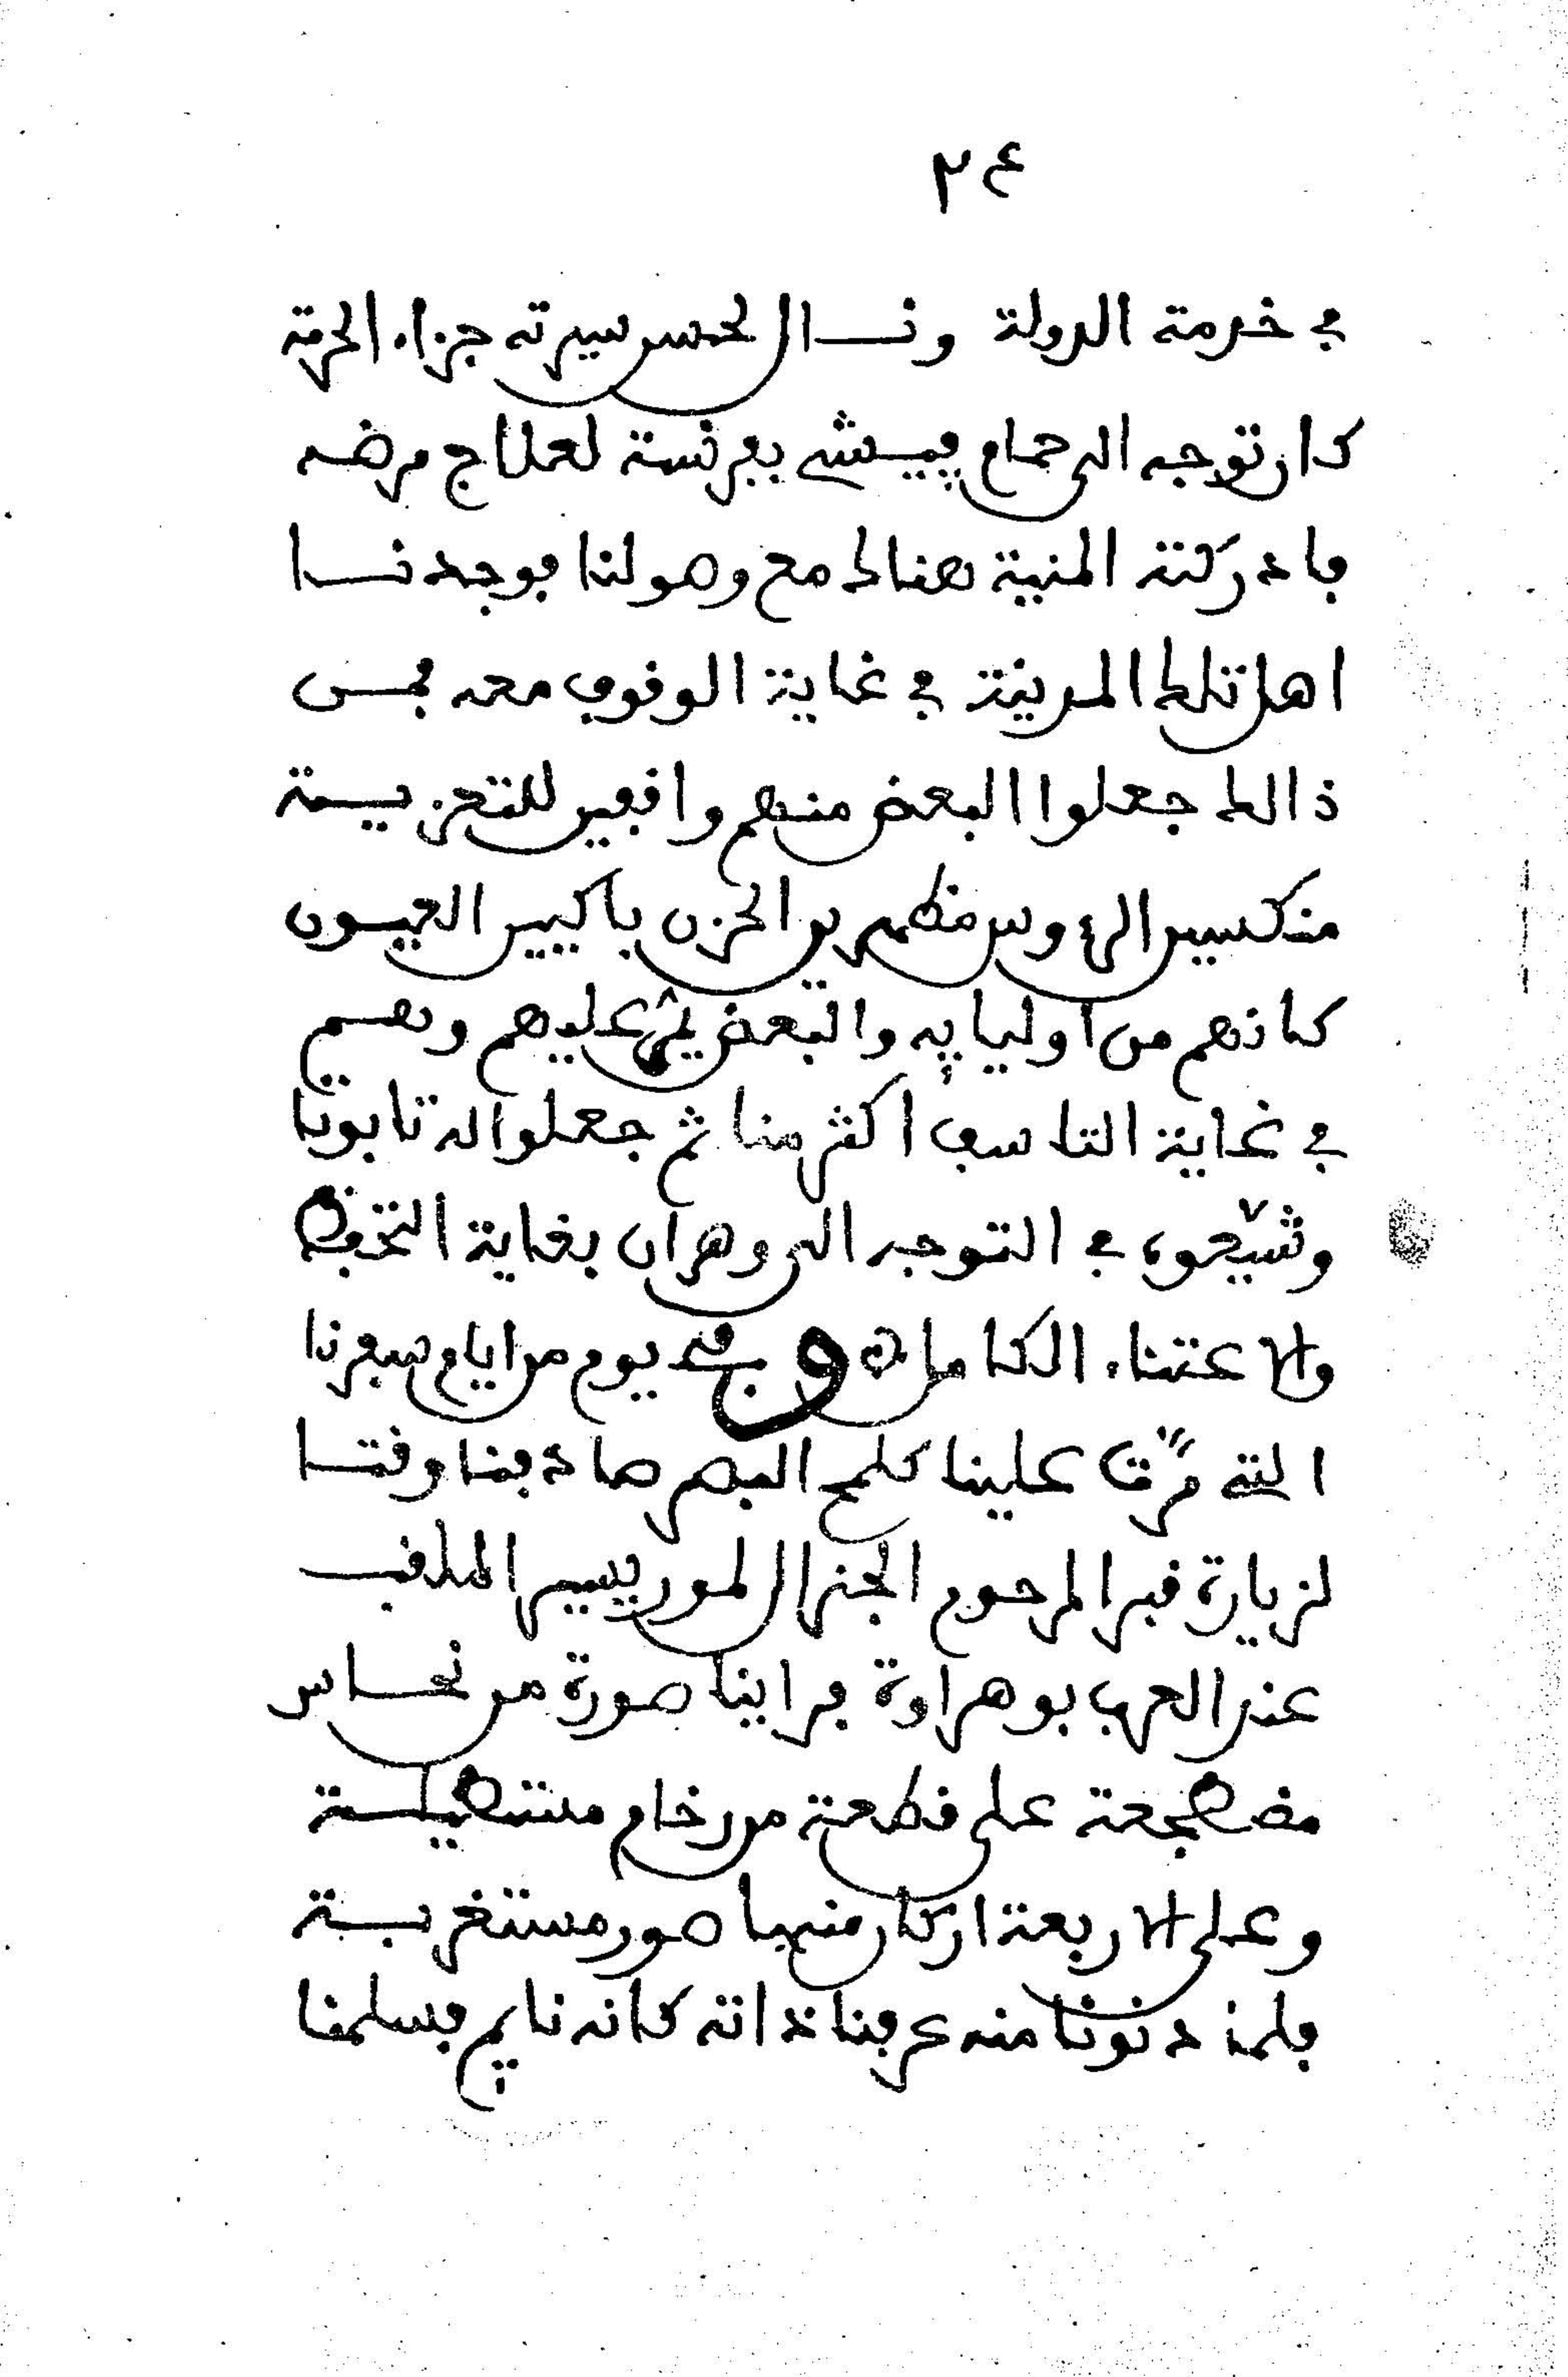 ٢٤
في خدمة الدولة ونال لحسن سيرته جزاء الحرمة
كان توجه الى حمام ڢيشي بفرنسة لعلاج مرضه
فادركته المنية هناك مع وصولنا فوجدنا
اهل تلك المدينة في غاية الوقوف معه فمن
ذالك جعلوا البعض منهم واقفين للتعزية
منكسين الرءوس مظهرين الحزن باكيين العيون
كانهم من اوليايه والبعض يمر عليهم وهم
في غاية التاسف اكثر منا ثم جعلوا له تابوتا
وشيّعوه في التوجه الى وهران بغاية التحفظ
والاعتناء الكامل وفي يوم من ايام سفرنا
التي مرّت علينا كلمح البصر صادفنا وقتا
لزيارة قبر المرحوم الجنرال لموريسيير الملقب
عند العرب بوهراوة فراينا صورة من نحاس
مضطجعة على قطعة من رخام مستطيلة
وعلى الاربعة اركان منها صور مستغربة
فلما دنونا منه عرفنا ذاته كانه نايم فسلمنا